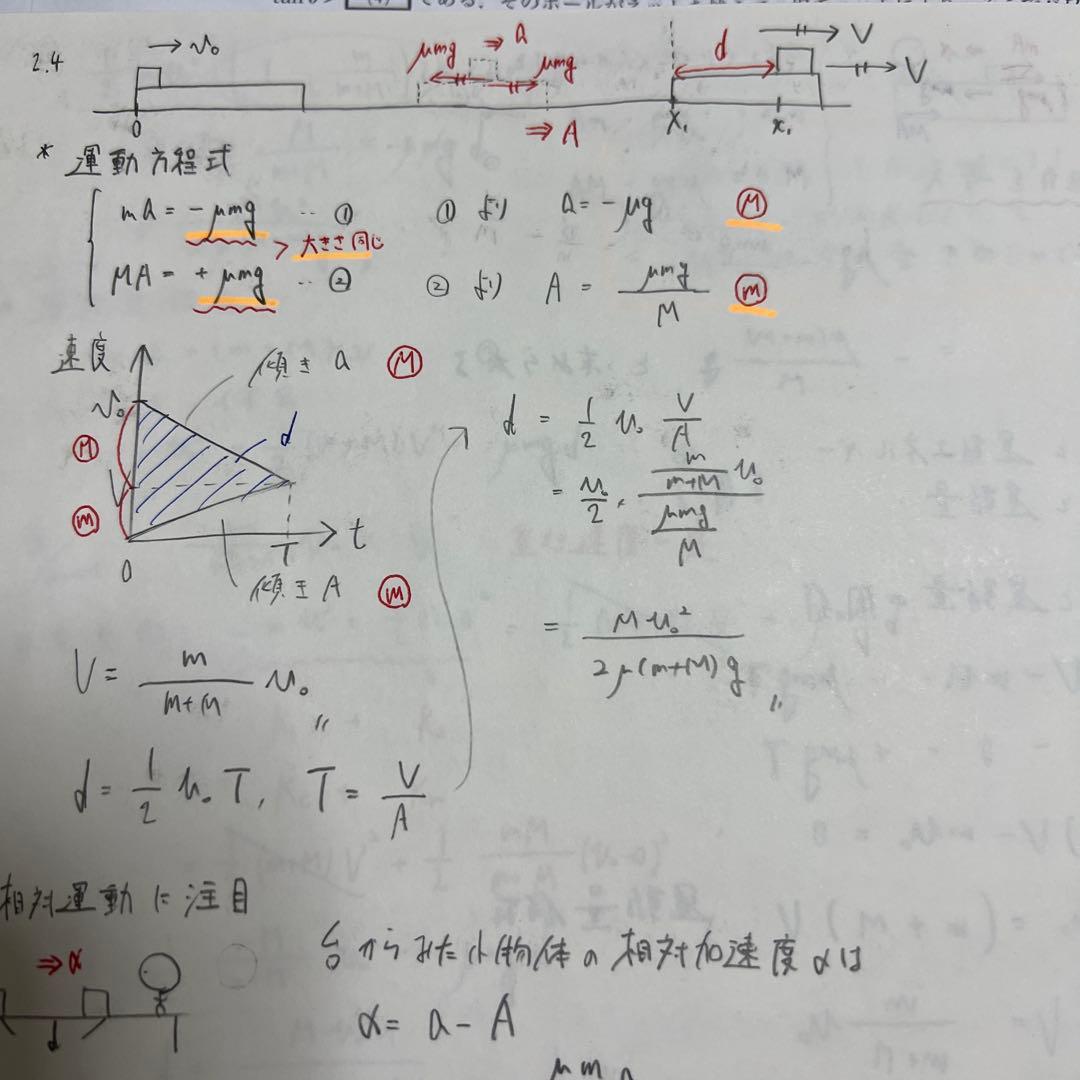 2.4
→ v₀
μmg
⇒ a
μmg
⇒ A
d
V
V
0
X₁
x₁
* 運動方程式
ma = - μmg … ① ① より a = -μg Ⓜ
> 大きさ同じ
MA = + μmg … ② ② より A = μmg/M ⓜ
速度
傾き a Ⓜ
v₀
d
Ⓜ
V
ⓜ
0
T
t
傾き A ⓜ
V = m/(m+M) v₀ 〃
d = 1/2 v₀ T, T = V/A
d = 1/2 v₀ V/A
= v₀/2 · (m/(m+M) v₀)/(μmg/M)
= M v₀²/(2μ(m+M)g) 〃
相対運動に注目
⇒ α
d
台からみた小物体の相対加速度αは
α = a - A